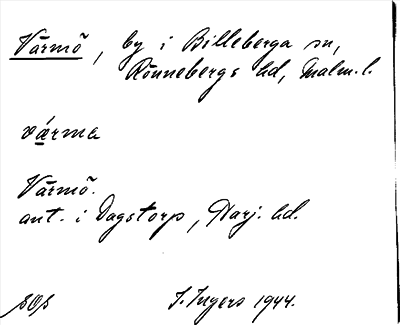 Värmö, by i Billeberga sn,
Rönnebergs hd, Malm. l.
várma
Värmö.
ant. i Dagstorp, Harj. hd.
I. Ingers 1944.